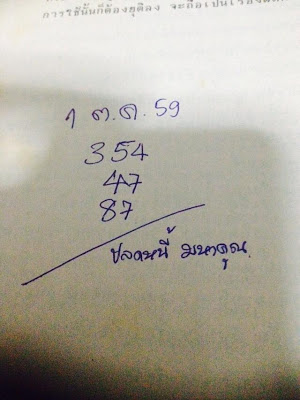 การใช้นั้นก็ต้องยุติลง จะถือเป็นเรื่อง
1 ต.ค. 59
354
47
87
ปลดหนี้ มหาคูณ